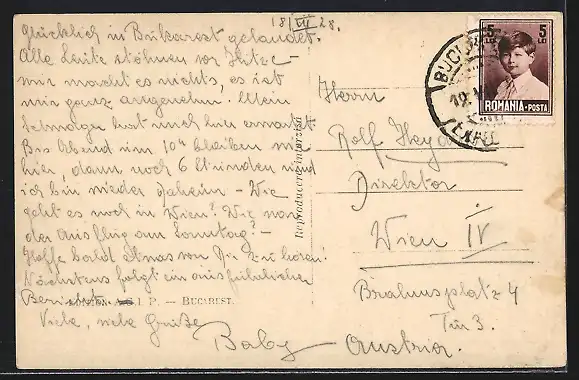 18/VII 28.
Glücklich in Bukarest gelandet.
Alle Leute stöhnen vor Hitze -
mir macht es nichts, es ist
mir ganz angenehm. Mein
hat mich hier erwartet.
Bis Abend um 10h bleiben wir
hier, dann noch 6 Stunden und
ich bin wieder daheim - Wie
geht es noch in Wien? Wie war
der Ausflug am Sonntag? -
Hoffe bald etwas von Dir zu hören!
Nächstens folgt ein ausführlicher
Bericht.
Viele, viele Grüße
Baby
I. P. — BUCAREST.
Reproducerea interzisă
5 LEI 5 LEI
ROMANIA-POSTA
BUCU
Herrn
Rolf
Direktor
Wien IV
Brahmsplatz 4
Tür 3.
Austria.